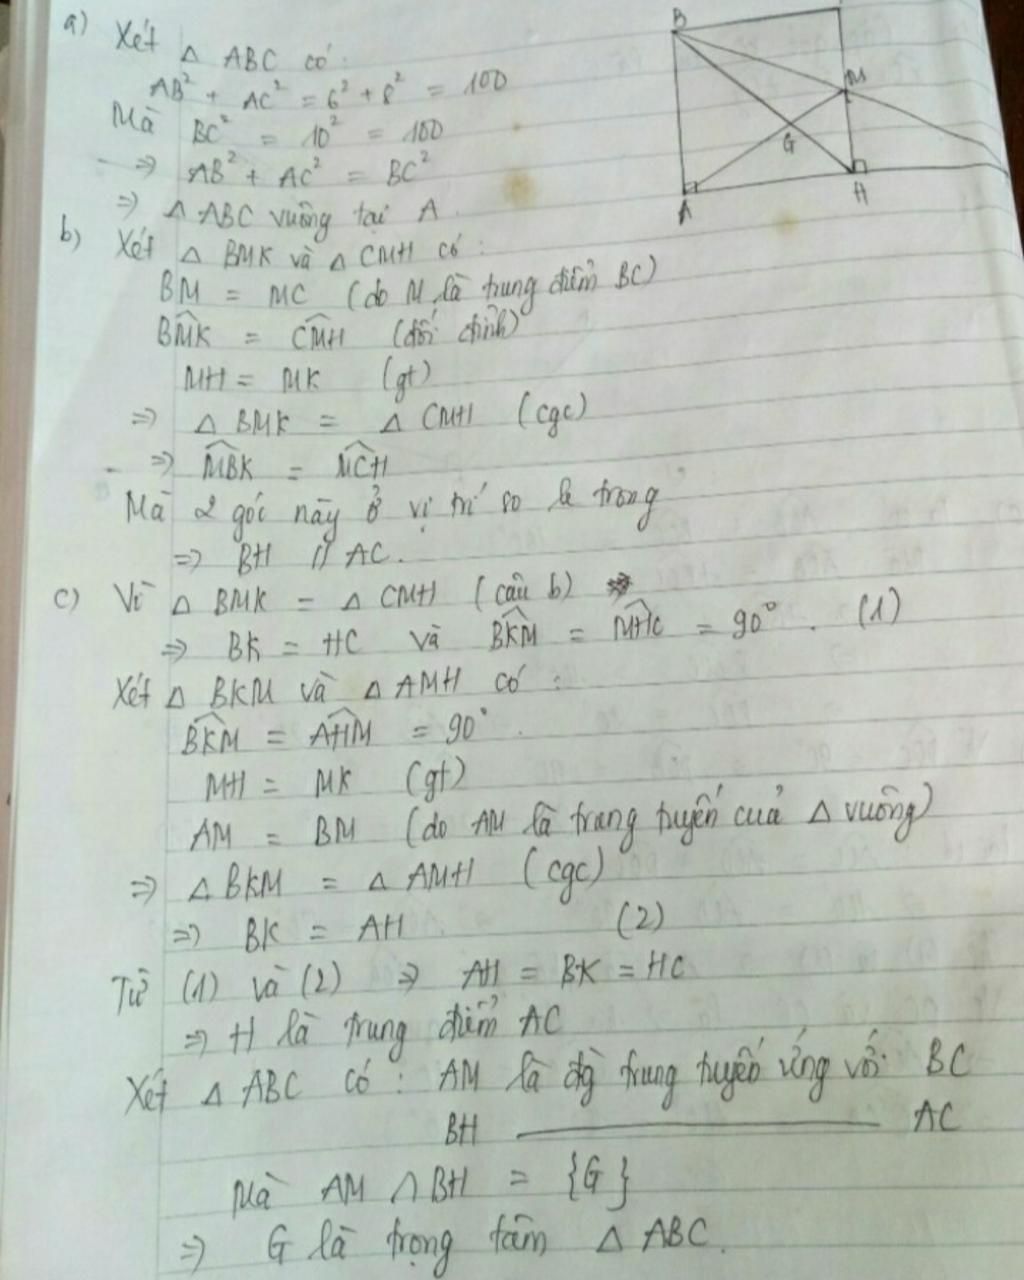 a) Xét △ ABC có:
AB² + AC² = 6² + 8² = 100
Mà BC² = 10² = 100
⇒ AB² + AC² = BC²
⇒ △ ABC vuông tại A.
b) Xét △ BMK và △ CMH có:
BM = MC (do M là trung điểm BC)
\widehat{BMK} = \widehat{CMH} (đối đỉnh)
MH = MK (gt)
⇒ △ BMK = △ CMH (cgc)
⇒ \widehat{MBK} = \widehat{MCH}
Mà 2 góc này ở vị trí so le trong
⇒ BH // AC.
c) Vì △ BMK = △ CMH (câu b)
⇒ BK = HC và \widehat{BKM} = \widehat{MHC} = 90°. (1)
Xét △ BKM và △ AMH có:
\widehat{BKM} = \widehat{AHM} = 90°.
MH = MK (gt)
AM = BM (do AM là trung tuyến cuả △ vuông)
⇒ △ BKM = △ AMH (cgc)
⇒ BK = AH (2)
Từ (1) và (2) ⇒ AH = BK = HC
⇒ H là trung điểm AC
Xét △ ABC có: AM là đg trung tuyến ứng vối BC
BH ———— AC
Mà AM ∩ BH = {G}
⇒ G là trọng tâm △ ABC.
B
M
G
A
H